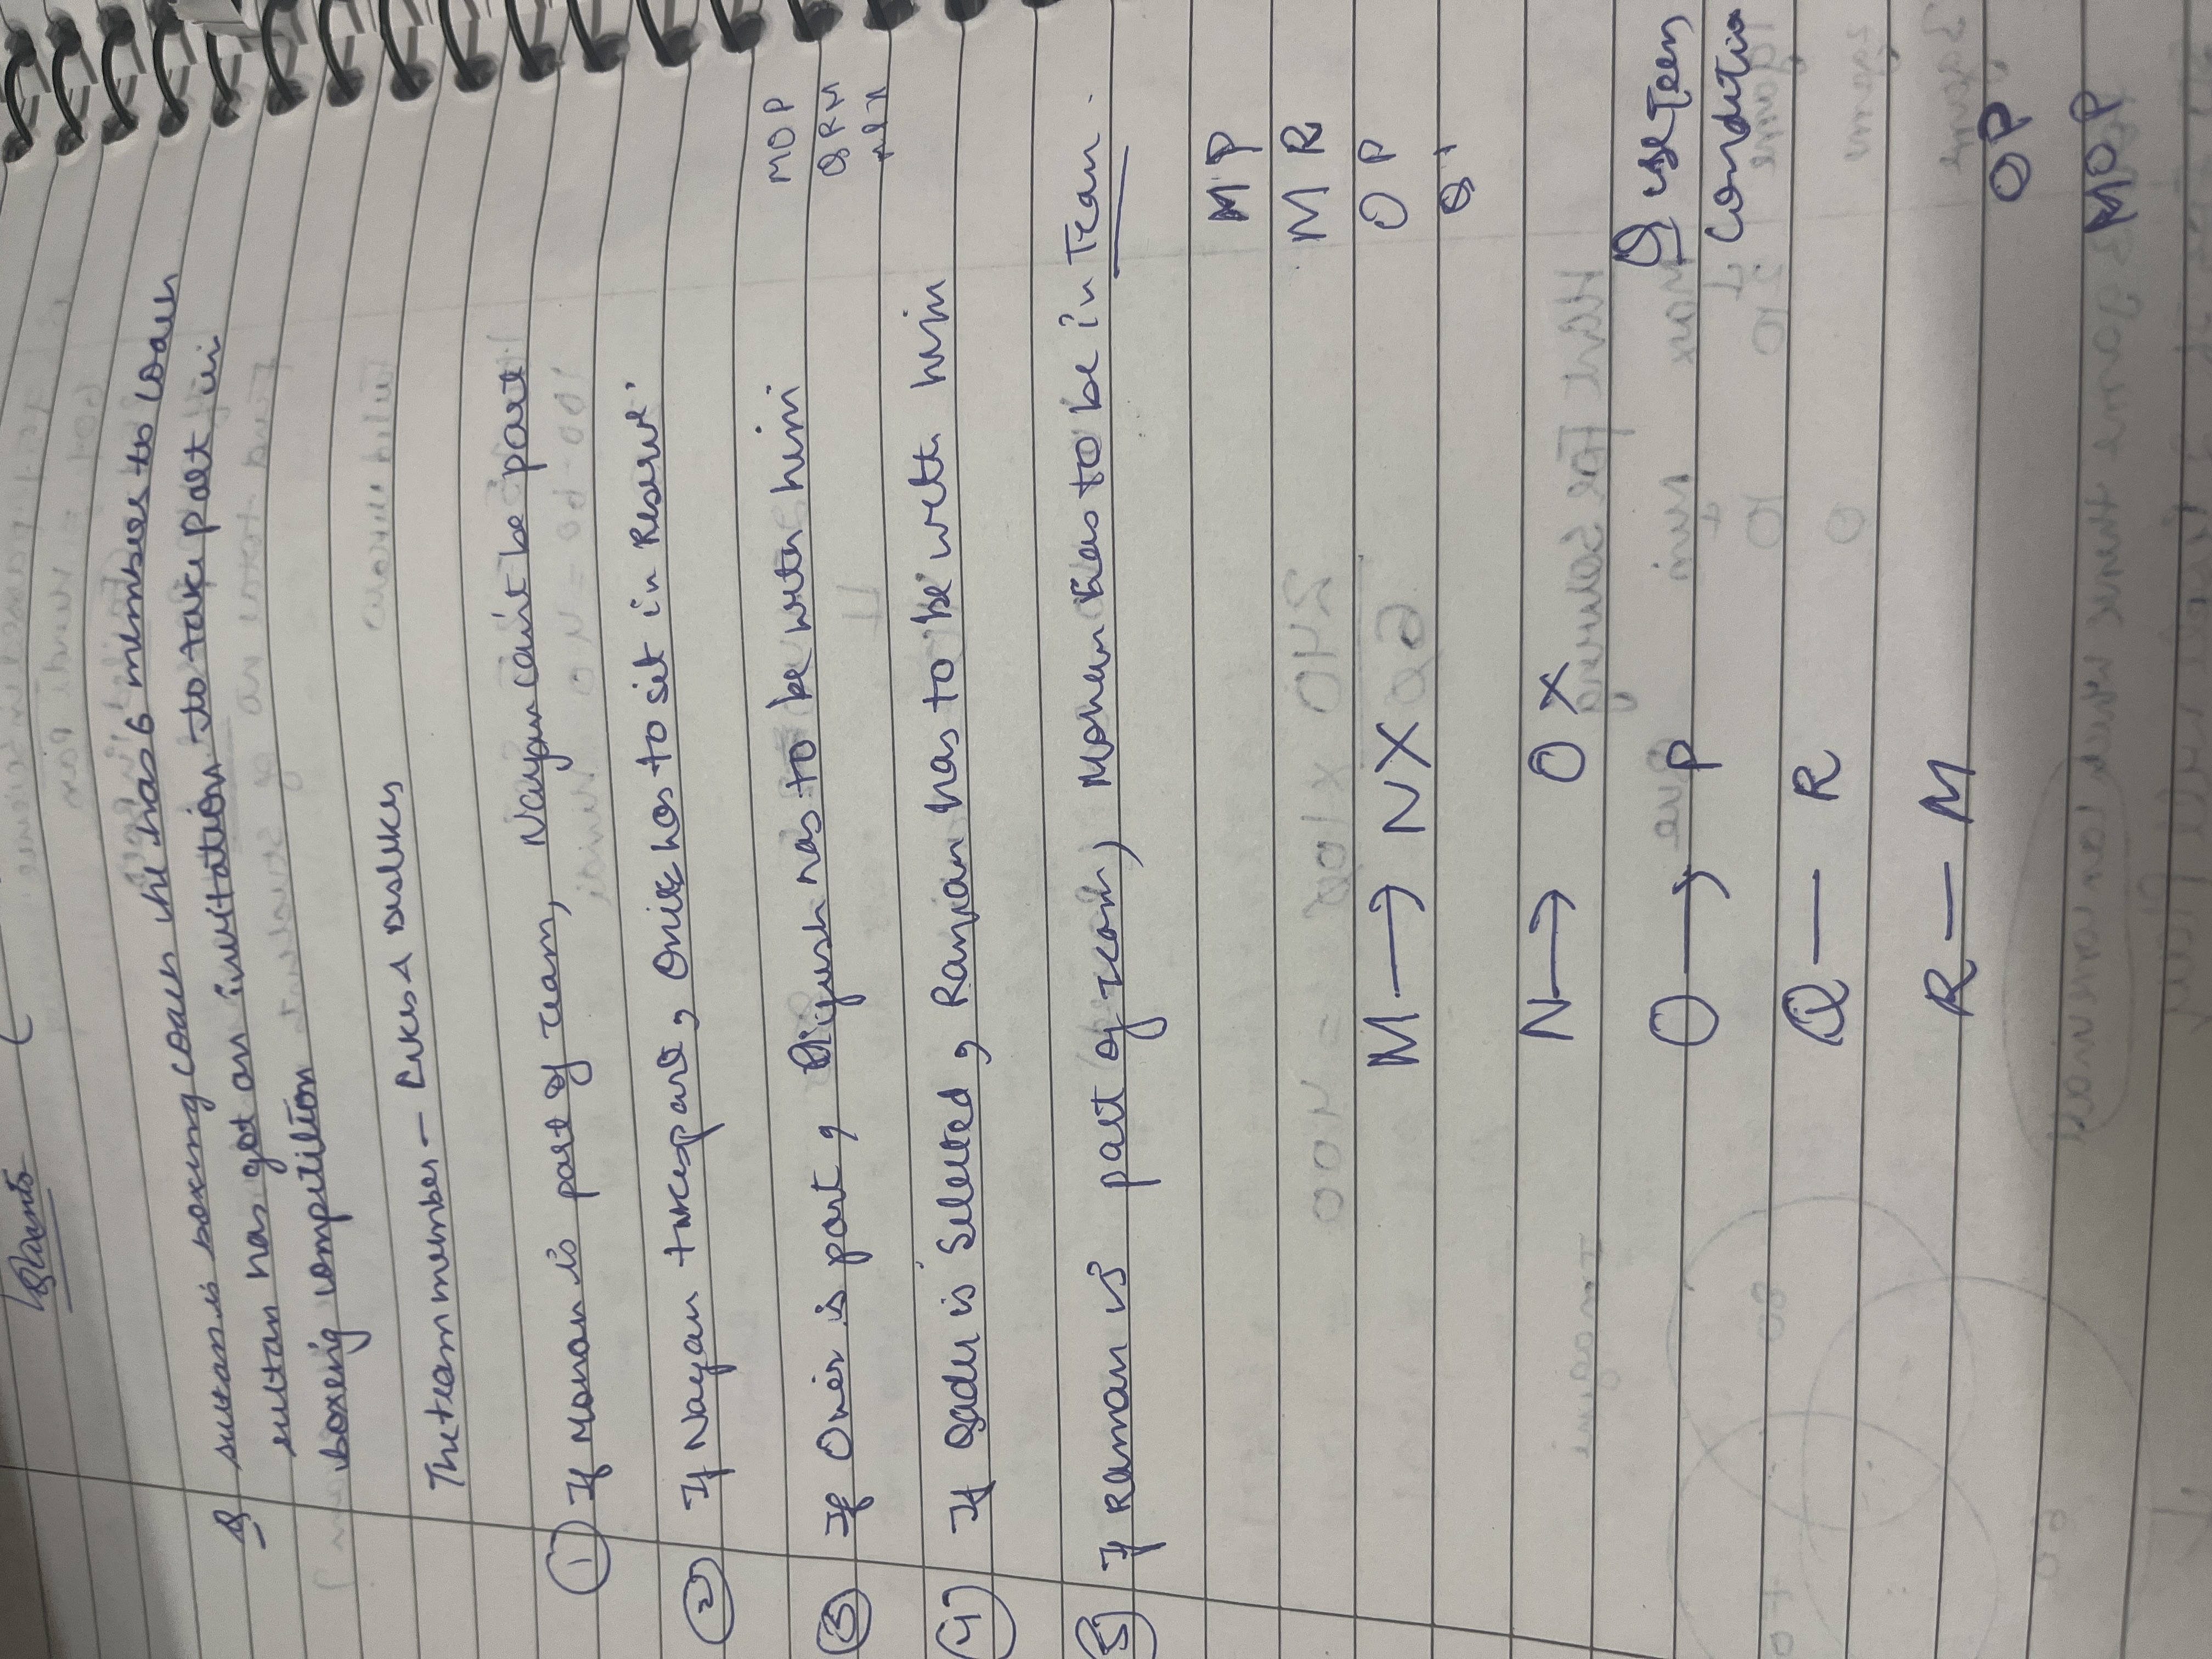 Q sultan is boxing coach he has 6 members to coach
sultan has got an invitation to take part in
boxing competition
The team member - Likes & Dislikes
① If Mohan is part of team, Nayan can't be part
② If Nayan takes part, Onir has to sit in Reserve
③ If Onir is part, Piyush has to be with him
④ If Qadir is Selected, Ranjan has to be with him
⑤ If Raman is part of team, Mohan has to be in Team.
MOP
QRM
MP
MR
OP
M → NX
N → OX
O → P
Q — R
R — M
Q
Condition
OP
MOP